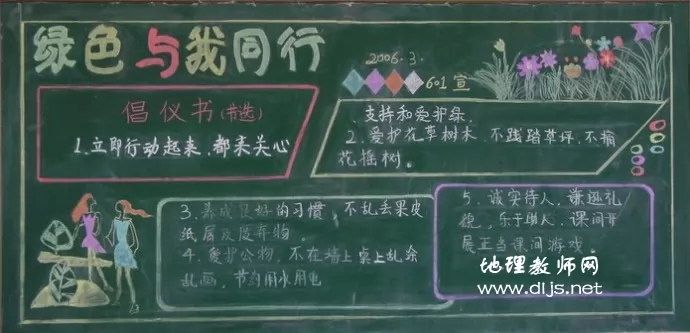 绿色与我同行
2006.3.
601宣
倡仪书(节选)
1.立即行动起来,都来关心
、支持和爱护绿.
2.爱护花草树木、不践踏草坪,不摘
花摇树。
3.养成良好的习惯,不乱丢果皮
纸屑及废弃物。
4.爱护公物,不在墙上桌上乱涂
乱画,节约用水用电
5、诚实待人,谦逊礼
貌,乐于助人、课间开
展正当课间游戏。
地理教师网
www.dljs.net